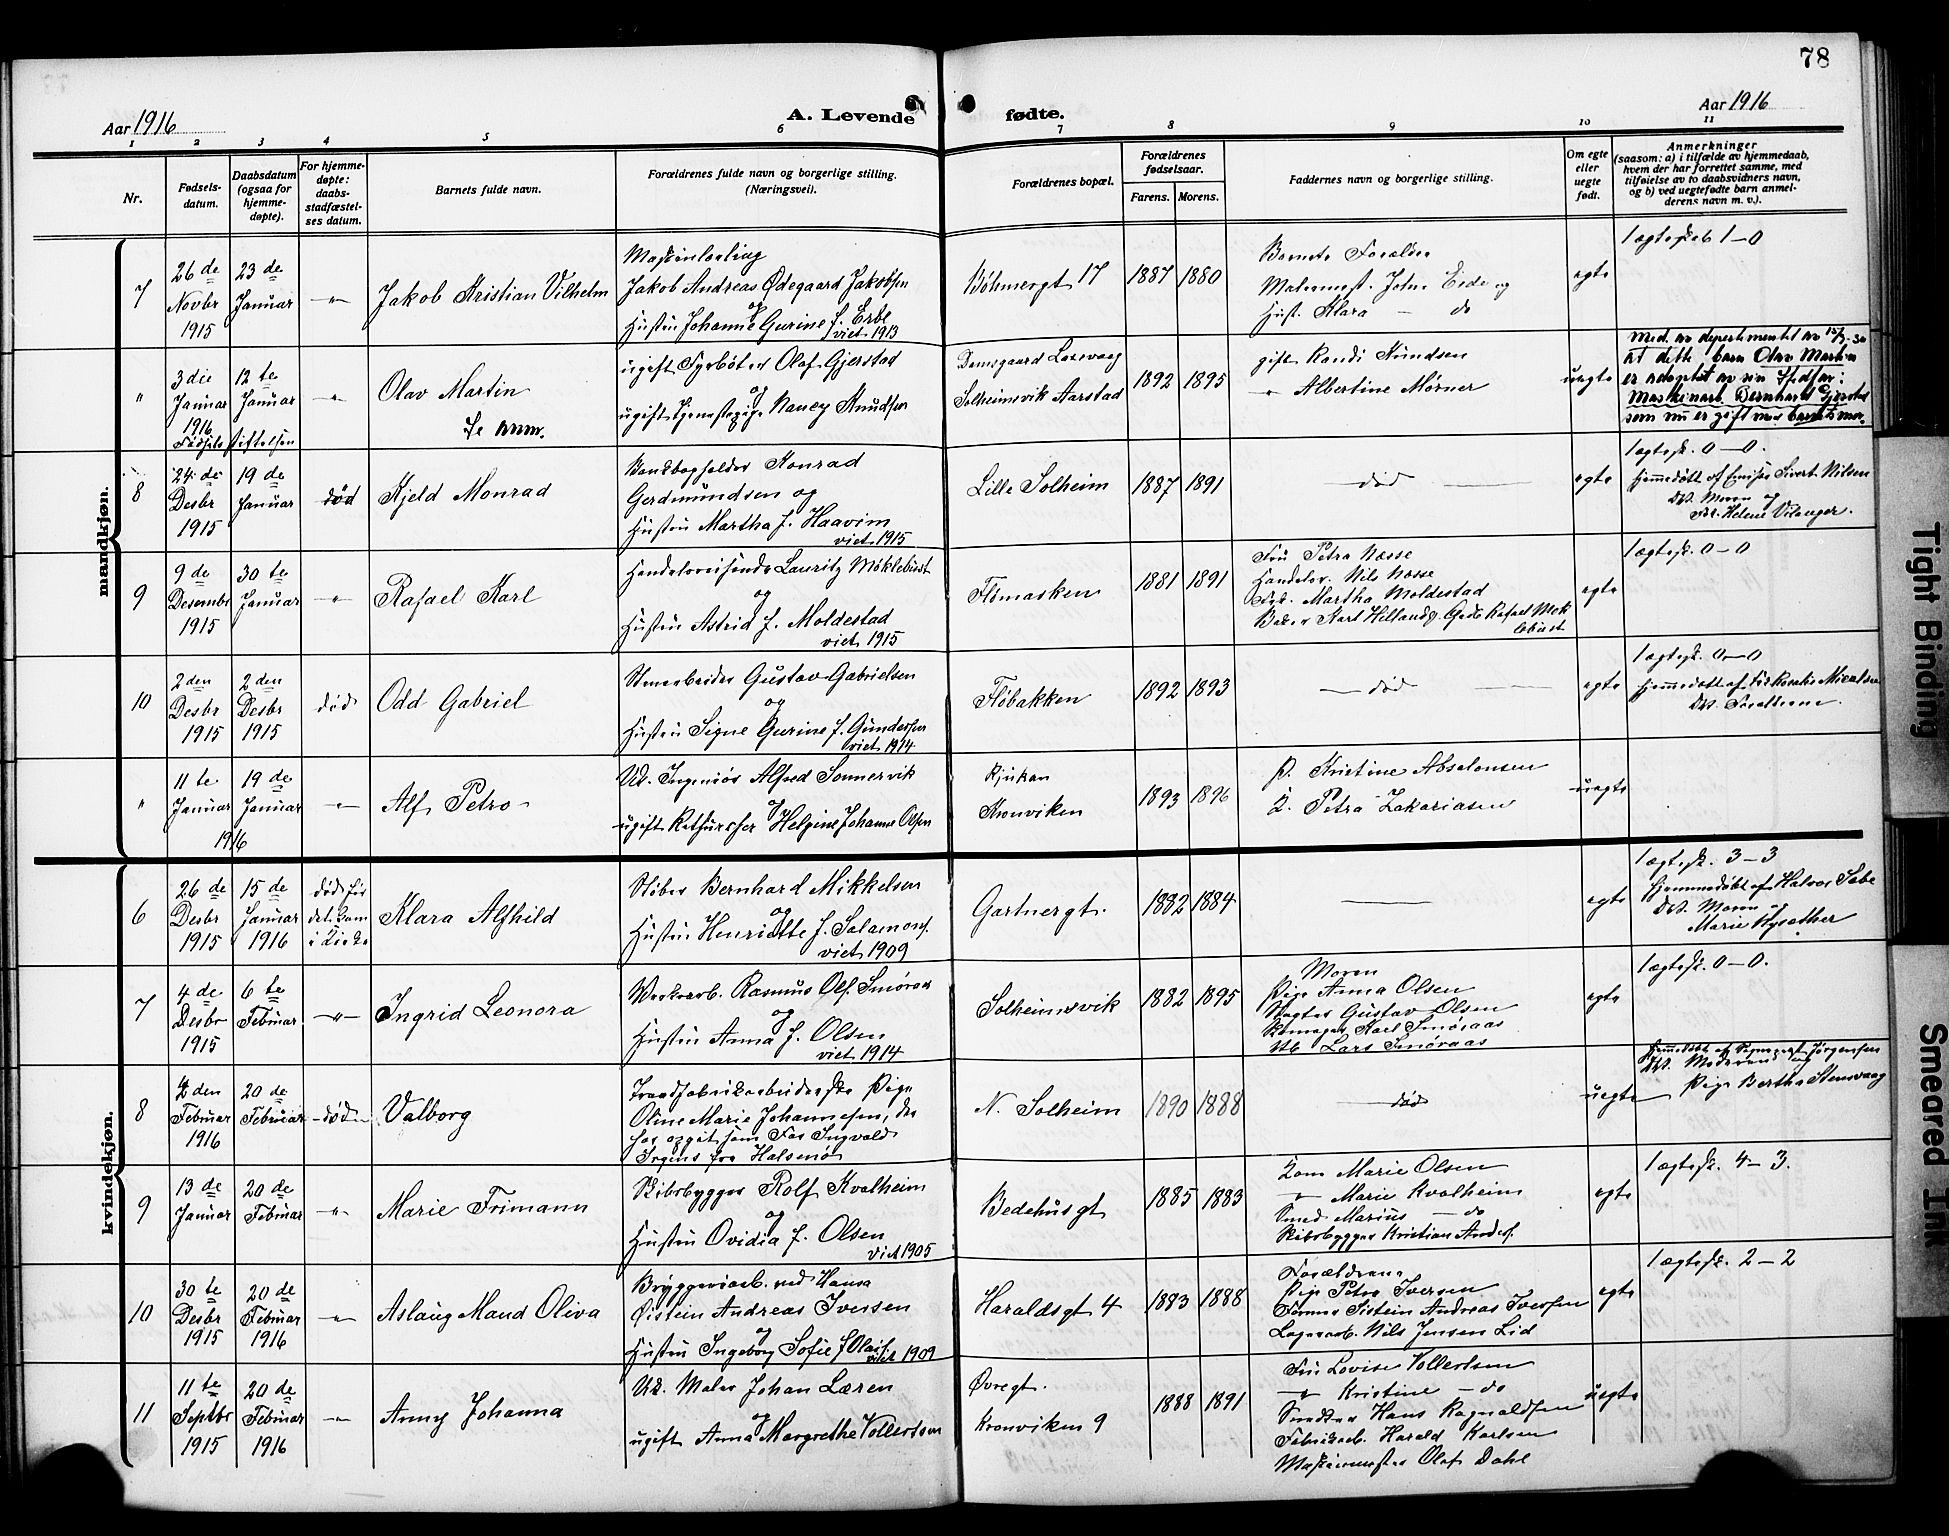 78
Aar 1916
A. Levende
fødte.
Aar 1916
1 2 3 4 5 6 7 8 9 10 11
Nr.
Fødsels-
datum.
Daabsdatum
(ogsaa for
hjemme-
døpte).
For hjemme-
døpte:
daabs-
stadfæstel-
ses datum.
Barnets fulde navn.
Forældrenes fulde navn og borgerlige stilling.
(Næringsvei).
Forældrenes bopæl.
Forældrenes
fødselsaar.
Farens. Morens.
Faddernes navn og borgerlige stilling.
Om egte
eller
uegte
født.
Anmerkninger
(saasom: a) i tilfælde av hjemmedaab,
hvem der har forrettet samme, med
tilføielse av to daabsvidners navn,
og b) ved uegtefødte barn anmel-
derens navn m. v.).
mandkjøn.
7
26 de
Novbr
1915
23 de
Januar
-"-
Jakob Kristian Vilhelm
Jakob Andreas Ødegaard Jakobsen
og
Hustru Johanne Gurine f. Erbe
viet 1913
Bøhmergt 17
1887 1880
Barnets Forældre
Malermest. John Eide og
Hust. Klara — do
egte
1 ægtesk. 1—0
"
3 die
Januar
1916
Fødselsstiftelsen
12 te
Januar
-"-
Olav Martin
Se anm.
ugift Fyrbøter Olaf Gjerstad
og
ugift Tjenestepige Nancy Knudsen
Damsgaard Laxevaag
Solheimsvik Aarstad
1892 1895
gift Randi Knudsen
" Albertine Mørner
uegte
Med. av departementet av
at dette barn Olav Martin
er adoptert av sin Stedfar:
Maskinarb. Bernhard Gjerstad
som nu er gift med barnets mor.
8
24. de
Desbr
1915
19 de
Januar
død
Kjeld Monrad
Konrad
Gerdmundsen og
Hustru Martha f. Haavim
viet 1915
Lille Solheim
1887 1891
— død —
egte
1 ægtesk. 0—0.
Hjemmedøbt af Sivert Nilsen
Dbv. Moren og
Helene Vilanger.
9
9 de
Desembr
1915
30 te
Januar
-"-
Rafael Karl
Handelsreisende Lauritz Møklebust
og
Hustru Astrid f. Moldestad
viet 1915
Flømasken
1881 1891
Fru Petra Næsse
Handelsr. Nils Næsse
Martha Moldestad
Karl Helland Rafael Møk
lebust
egte
1 ægtesk. 0—0
10
2 den
Desbr
1915
2 den
Desbr
1915
død
Odd Gabriel
Stenarbeider Gustav Gabrielsen
og
Hustru Signe Gurine f. Gundersen
viet 1914
Fløbakken
1892 1893
— død —
egte
1 ægtesk. 0—0
Hjemmedøbt af
Dbv. Forældrene.
"
11 te
Januar
1916
19 de
Januar
-"-
Alf Petro
Ud. Ingeniør Alfred Sonnervik
og
ugift Helgine Johanne Olsen
Rjukan
Kronviken
1893 1896
P. Kristine Absalonsen
K. Petra Zakariasen
uegte
kvindekjøn.
6
26 de
Desbr
1915
15 de
Januar
1916
død før
det kom
i Kirke
Klara Alfhild
Støber Bernhard Mikkelsen
og
Hustru Henriette f. Salamons.
viet 1909
Gartnergt.
1882 1884
egte
1 ægtesk. 3—3
Hjemmedøbt af Halvor Sæbe
Dbv. Moren og
Marie
7
4 de
Desbr
1915
6 te
Februar
-"-
Ingrid Leonora
Rasmus Ols. Smøraas
og
Hustru Anna f. Olsen
viet 1914
Solheimsvik
1882 1895
Moren
Pige Anna Olsen
Slagter Gustav Olsen
Skomager Karl Smøraas
Lars Smøraas
egte
1 ægtesk. 0—0.
8
2 den
Februar
1916
20 de
Februar
død
Valborg
Traadfabrikarbeiderske Pige
Oline Marie Johannesen, der
har opgit som Far Ingvald
Irgens fra Halsenø
N. Solheim
1890 1888
— død
uegte
Hjemmedøbt af Jørgensen
Dbv. Moderen og
Pige Bertha Stensvaag
9
13 de
Januar
20 de
Februar
-"-
Marie Frimann
Skibsbygger Rolf Kvalheim
og
Hustru Ovidia f. Olsen
viet 1905
Bedehusgt
1885 1883
Kone Marie Olsen
" Marie Kvalheim
Smed Marius — do
Skibsbygger Kristian Anders.
egte
1 ægtesk. 4—3.
10
30 te
Desbr
1915
20 de
Februar
1916
-"-
Aslaug Maud Oliva
Bryggeriarb. ved Hansa
Øistein Andreas Iversen
og
Hustru Ingeborg Sofie f. Olais.
viet 1909
Haraldsgt 4
1883 1888
Forældrene
Pige Petra Iversen
Andreas Iversen
Lagerarb. Nils Jensen Lid
egte
1 ægtesk. 2—2
11
11 te
Septbr
1915
20 de
Februar
1916
-"-
Anny Johanna
Ud. Maler Johan Læren
og
ugift Anna Margrethe Vollertsen
Øvregt.
Kronviken 9
1888 1891
Fru Lovise Vollertsen
-"- Kristine — do
Snedker Hans Ragnaldsen
Fabrikarb. Harald Karlsen
Maskinmester Olaf Dahl
uegte
Tight Binding
Smeared Ink